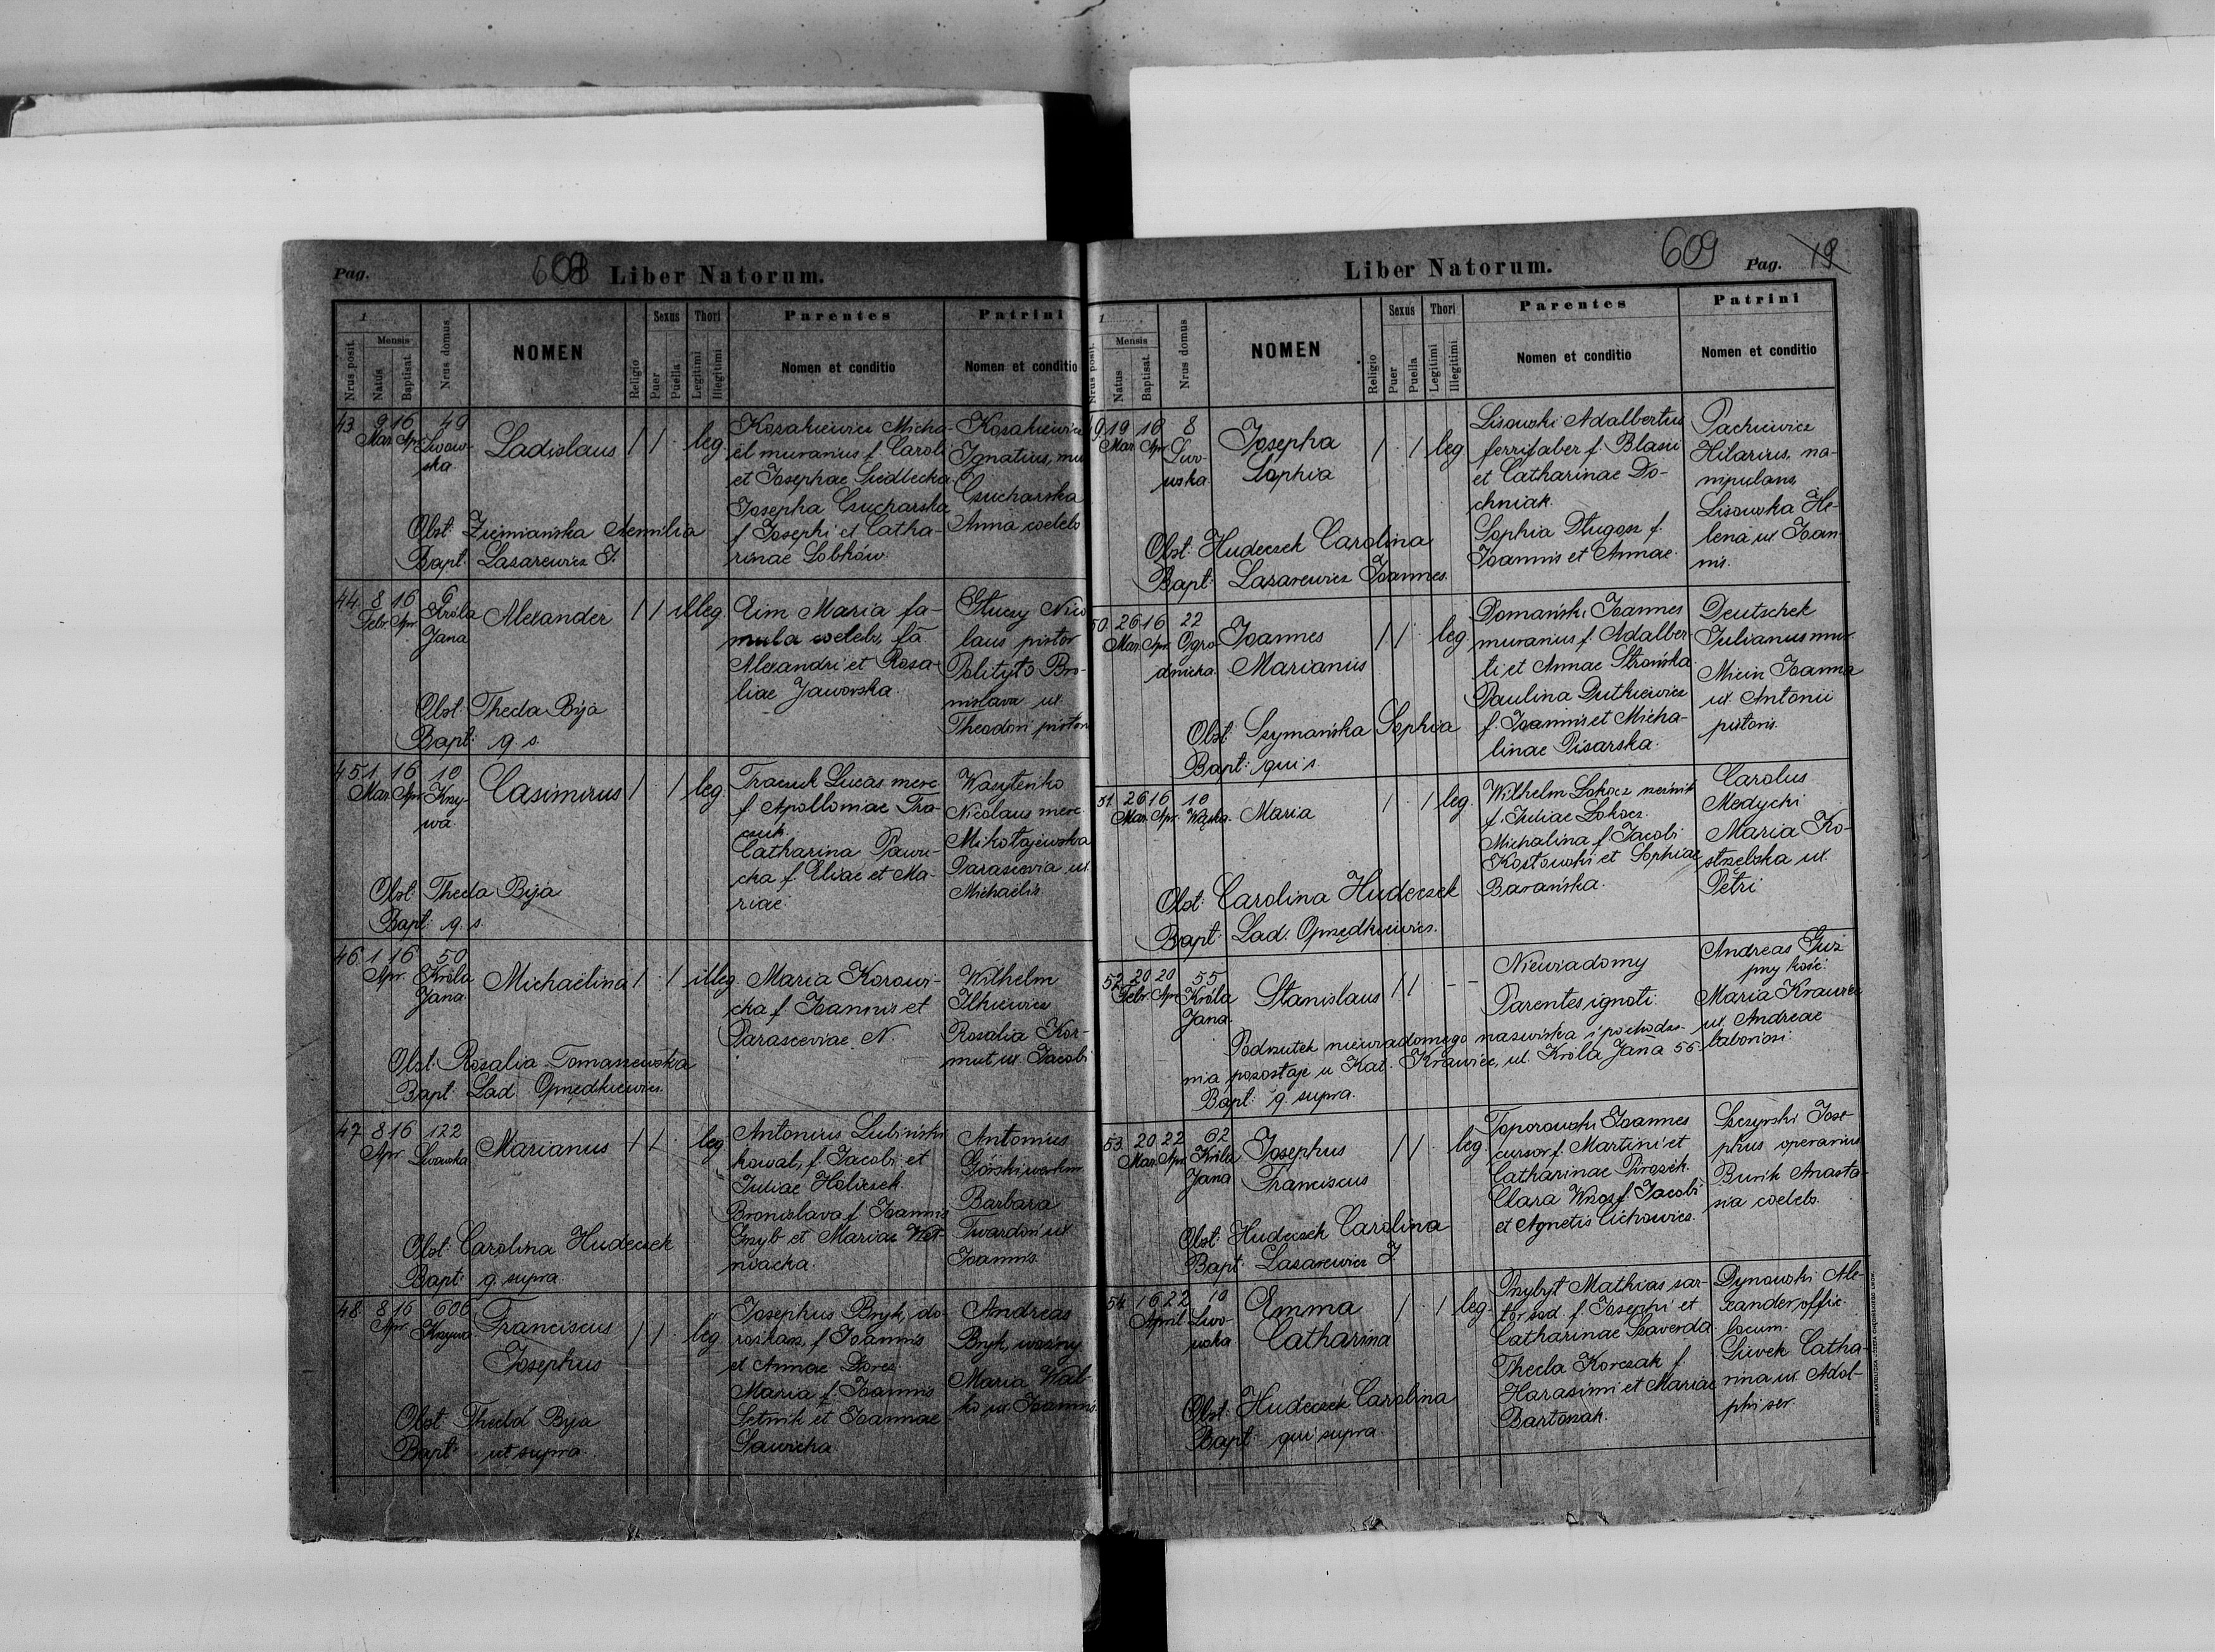 Pag.
608 Liber Natorum.
1
Nrus posit.
Mensis
Natus
Baptisat.
Nrus domus
NOMEN
Religio
Sexus
Puer
Puella
Thori
Legitimi
Illegitimi
Parentes
Nomen et conditio
Patrini
Nomen et conditio
43 9 16 49
Mar. Apr. Lwow-
ska
Ladislaus 1 1 leg.
Kosakiewicz Micha-
el murarius f. Caroli
et Josephae Siedlecka
Josepha Csucharska
f. Josephi et Catha-
rinae Lobków.
Kosakiewicz
Ignatius, mu
Csucharska
Anna coelebs
Obst: Ziemiańska Aemilia
Bapt: Lasarewicz J.
44 8 16 6
Febr. Apr. Króla
Jana
Alexander 1 1 illeg.
Maria fa-
mula coelebs, fa
Alexandri et Rosa-
liae Jaworska.
laus pistor
Bro-
nislava ux.
Theodori pistoris
Obst. Thecla Bija
Bapt: q. s.
45 1 16 10
Mar. Apr. Krzy-
wa.
Casimirus 1 1 leg.
Traczuk Lucas merc
f. Apolloniae Tra-
czuk.
Catharina Pawu-
cka f. Eliae et Ma-
riae.
Wasyteńko
Nicolaus merc.
Mikołajewska
Parascevia ux.
Michaëlis.
Obst: Thecla Bija
Bapt: q. s.
46 1 16 50
Apr. Króla
Jana
Michaëlina 1 1 illeg.
Maria Korowi-
cka f. Joannis et
Parasceviae N.
Wilhelm
Ilkiewicz
Rosalia Kor-
mut ux. Jacobi
Obst. Rosalia Tomaszewska
Bapt: Lad. Oprzędkiewicz.
47 8 16 122
Apr. Lwowska
Marianus 1 1 leg.
Antonius Lubiński
kowal, f. Jacobi et
Juliae Holiczek.
Bronislava f. Joannis
Grzyb et Mariae
Antonius
Górski
Barbara
Twardoń ux
Joannis.
Obst: Carolina Hudeczek
Bapt: q. supra.
48 8 16 606
Apr. Krzywa
Franciscus
Josephus
1 1 leg.
Josephus Bryk, do-
rożkarz, f. Joannis
et Annae
Maria f. Joannis
Letnik et Joannae
Sawicka
Andreas
Bryk, woźny
Maria Wal-
ko ux. Joannis.
Obst: Thecla Bija
Bapt: ut supra.
Liber Natorum.
609 Pag. 19
1
Nrus posit.
Mensis
Natus
Baptisat.
Nrus domus
NOMEN
Religio
Sexus
Puer
Puella
Thori
Legitimi
Illegitimi
Parentes
Nomen et conditio
Patrini
Nomen et conditio
9 19 10 8
Mar. Apr. Lwo-
wska.
Josepha
Sophia
1 1 leg
Lisowski Adalbertus
ferrifaber f. Blasii
et Catharinae Do-
chniak.
Sophia Długosz f.
Joannis et Annae.
Pachiewicz
Hilarius, ma-
nipulans
Lisowska He-
lena ux Joan-
nis.
Obst: Hudeczek Carolina
Bapt: Lasarewicz Joannes.
50 26 16 22
Mar. Apr. Ogro-
dnicka.
Joannes
Marianus
1 1 leg.
Domański Joannes
murarius f. Adalber-
ti et Annae Strońska.
Paulina Dutkiewicz
f. Joannis et Micha-
linae Pisarska.
Deutschek
Julianus mur.
Micin Joanna
ux. Antonii
pistoris.
Obst: Szymańska Sophia
Bapt: qui s.
51 26 16 10
Mar. Apr. Wąska.
Maria 1 1 leg.
Wilhelm Lokocz
f. Juliae Lokocz.
Michalina f. Jacobi
Kostowski et Sophiae
Barańska.
Carolus
Medycki
Maria Ko-
strzebska ux.
Petri
Obst: Carolina Hudeczek
Bapt: Lad. Oprzędkiewicz.
52 20 20 55
Febr. Apr. Króla
Jana.
Stanislaus 1 1 - -
Niewiadomy
Parentes ignoti.
Andreas Guz
przy kość.
Maria Krawiec
ux. Andreae
laboriosi.
Podrzutek niewiadomego nazwiska i pochodze-
nia pozostaje u Kat. Krawiec, ul. Króla Jana 55
Bapt: q. supra.
53 20 22 62
Mar. Apr. Króla
Jana
Josephus
Franciscus
1 1 leg.
Toporowski Joannes
cursor f. Martini et
Catharinae Pirożek.
Clara Wrosz f. Jacobi
et Agnetis Cichowicz.
Szczyrski Jose-
phus operarius
Burik Anasta-
sia coelebs.
Obst: Hudeczek Carolina
Bapt: Lasarewicz J.
54 16 22 10
April Lwo-
wska
Emma
Catharina
1 1 leg.
Przybył Mathias sar-
tor sod. f. Josephi et
Catharinae Szaverda
Thecla Korczak f.
Harasimi et Mariae
Bartoszak.
Dynowski Ale-
xander, offic.
locum.
Siwek Catha-
rina ux. Adol-
phi ser.
Obst: Hudeczek Carolina
Bapt: qui supra.